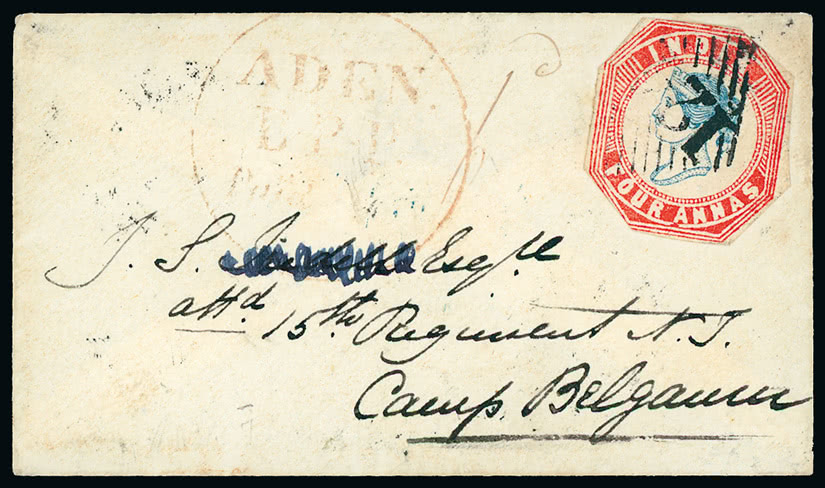 ADEN.
INDIA
FOUR ANNAS
J. S. Esqre
attd 15th Regiment N.I.
Camp Belgaum